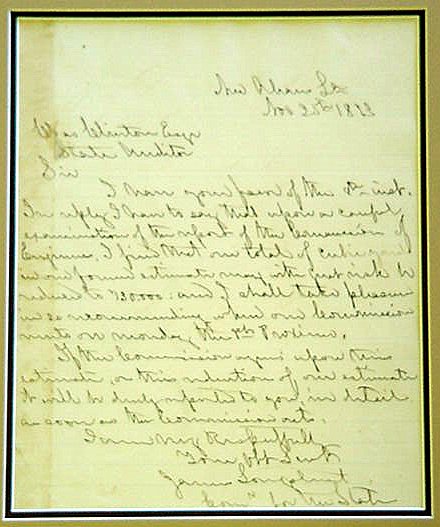 New Orleans La
Nov 25th 1873
Chas Clinton Esqr
State Auditor
Sir
I have your favor of the inst.
In reply I have to say that upon a careful
examination of the report of the Commission of
Engineers, I find that our total of cubic yards
in our former estimate may with just be
reduced to 730.000: and I shall take pleasure
in so recommending when our Commission
meets on monday the Proximo.
If the Commission agrees upon this
estimate, or this reduction of our estimate
it will be duly reported to you, in detail
as soon as the Commission acts.
I am very Respectfully
Your Obt Servt
James Longstreet
for the State